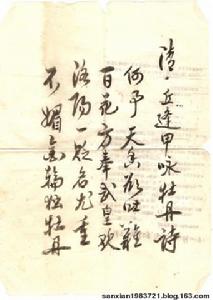 清·丘逢甲咏牡丹詩
何事天香欲吐難
百花方奉武皇欢
洛陽一贬名尤重
不媚金輪独牡丹
sanxian1983721.blog.163.com